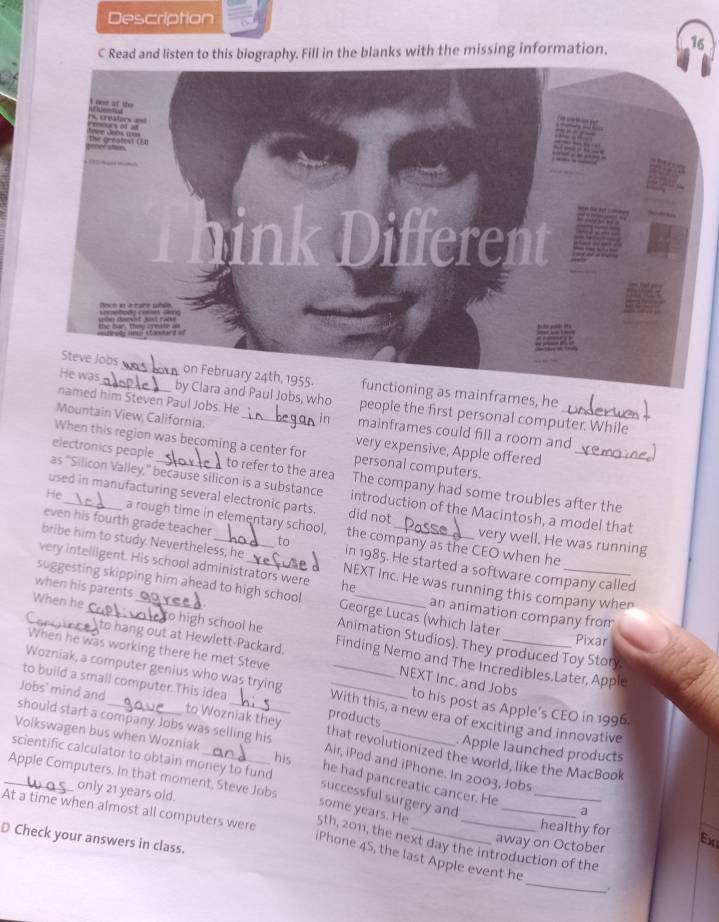 Description
C Read and listen to this biography. Fill in the blanks with the missing information.
16
Think Different
Once in a rare while,
somebody comes along
who doesn't just raise
the bar, they create an
entirely new standard of
Steve Jobs was born on February 24th, 1955.
He was adopted by Clara and Paul Jobs, who
named him Steven Paul Jobs. He in began in
Mountain View, California.
When this region was becoming a center for
electronics people started to refer to the area
as "Silicon Valley," because silicon is a substance
used in manufacturing several electronic parts.
He led a rough time in elementary school,
even his fourth grade teacher had to
bribe him to study. Nevertheless, he refused
very intelligent. His school administrators were
suggesting skipping him ahead to high school
when his parents agreed.
When he captivated to high school he
Convinced to hang out at Hewlett-Packard.
When he was working there he met Steve
Wozniak, a computer genius who was trying
to build a small computer. This idea his
Jobs' mind and gave to Wozniak they
should start a company. Jobs was selling his
Volkswagen bus when Wozniak and his
scientific calculator to obtain money to fund
Apple Computers. In that moment, Steve Jobs
was only 21 years old.
At a time when almost all computers were
functioning as mainframes, he underwent
people the first personal computer. While
mainframes could fill a room and remained
very expensive, Apple offered
personal computers.
The company had some troubles after the
introduction of the Macintosh, a model that
did not Passed very well. He was running
the company as the CEO when he
in 1985. He started a software company called
NEXT Inc. He was running this company when
he an animation company from
George Lucas (which later Pixar
Animation Studios). They produced Toy Story,
Finding Nemo and The Incredibles. Later, Apple
NEXT Inc. and Jobs
to his post as Apple's CEO in 1996.
With this, a new era of exciting and innovative
products . Apple launched products
that revolutionized the world, like the MacBook
Air, iPod and iPhone. In 2003, Jobs
he had pancreatic cancer. He a
successful surgery and healthy for
some years. He away on October
5th, 2011, the next day the introduction of the
iPhone 4S, the last Apple event he .
D Check your answers in class.
Ex